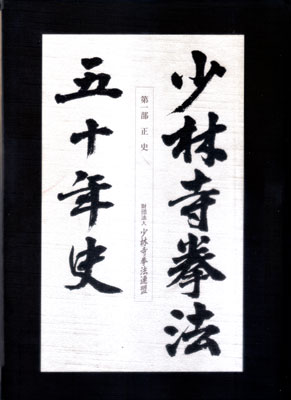 少林寺拳法
五十年史
第一部 正史
財団法人 少林寺拳法連盟